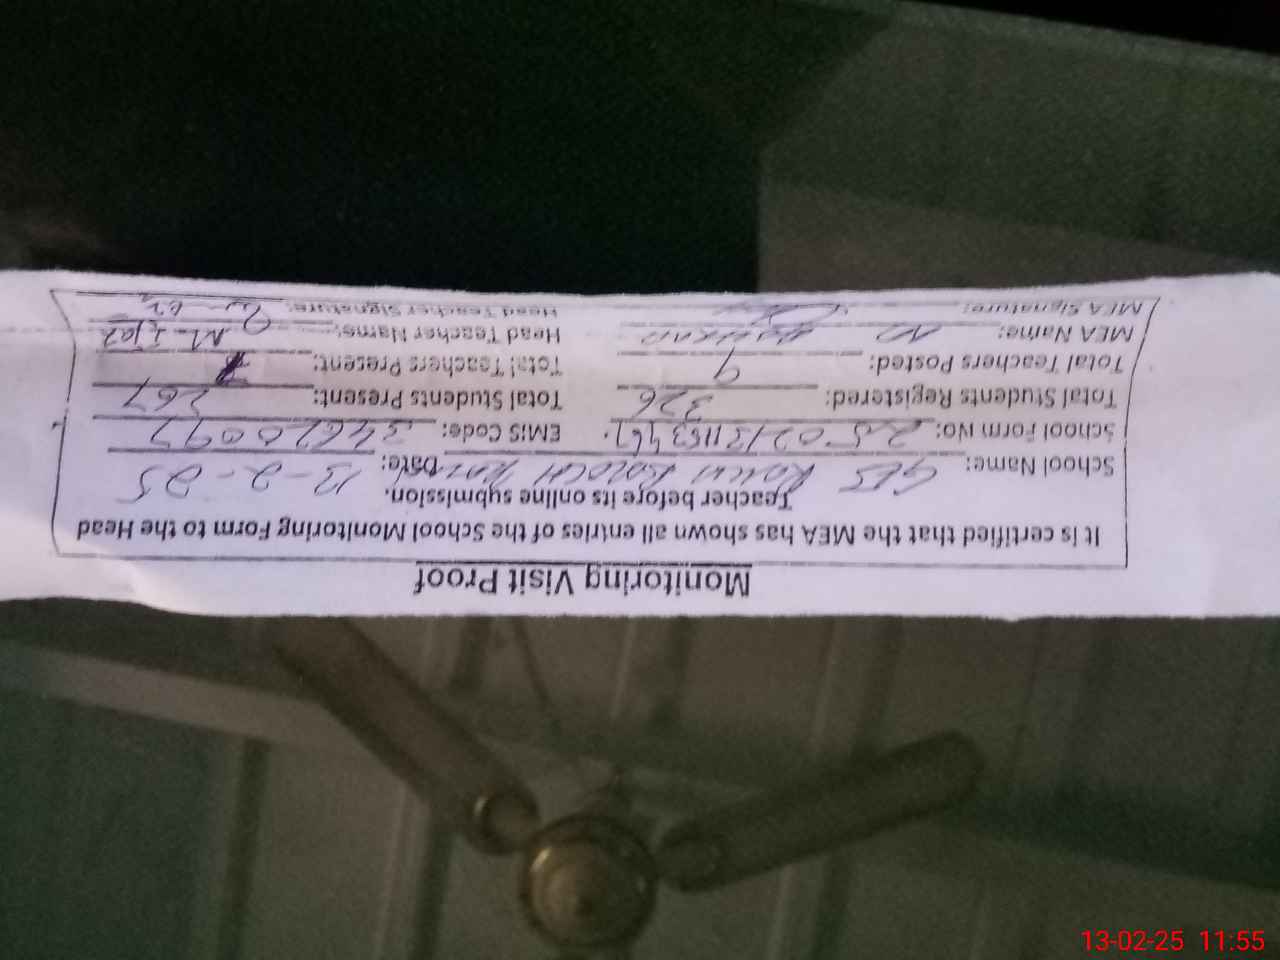 Monitoring Visit Proof
It is certified that the MEA has shown all entries of the School Monitoring Form to the Head
Teacher before its online submission.
School Name: GES Date: 13-2-25
School Form No: EMIS Code:
Total Students Registered: 326 Total Students Present: 267
Total Teachers Posted: 9 Total Teachers Present:
MEA Name: M Head Teacher Name: M-Ijaz
MEA Signature: Head Teacher Signature:
13-02-25 11:55